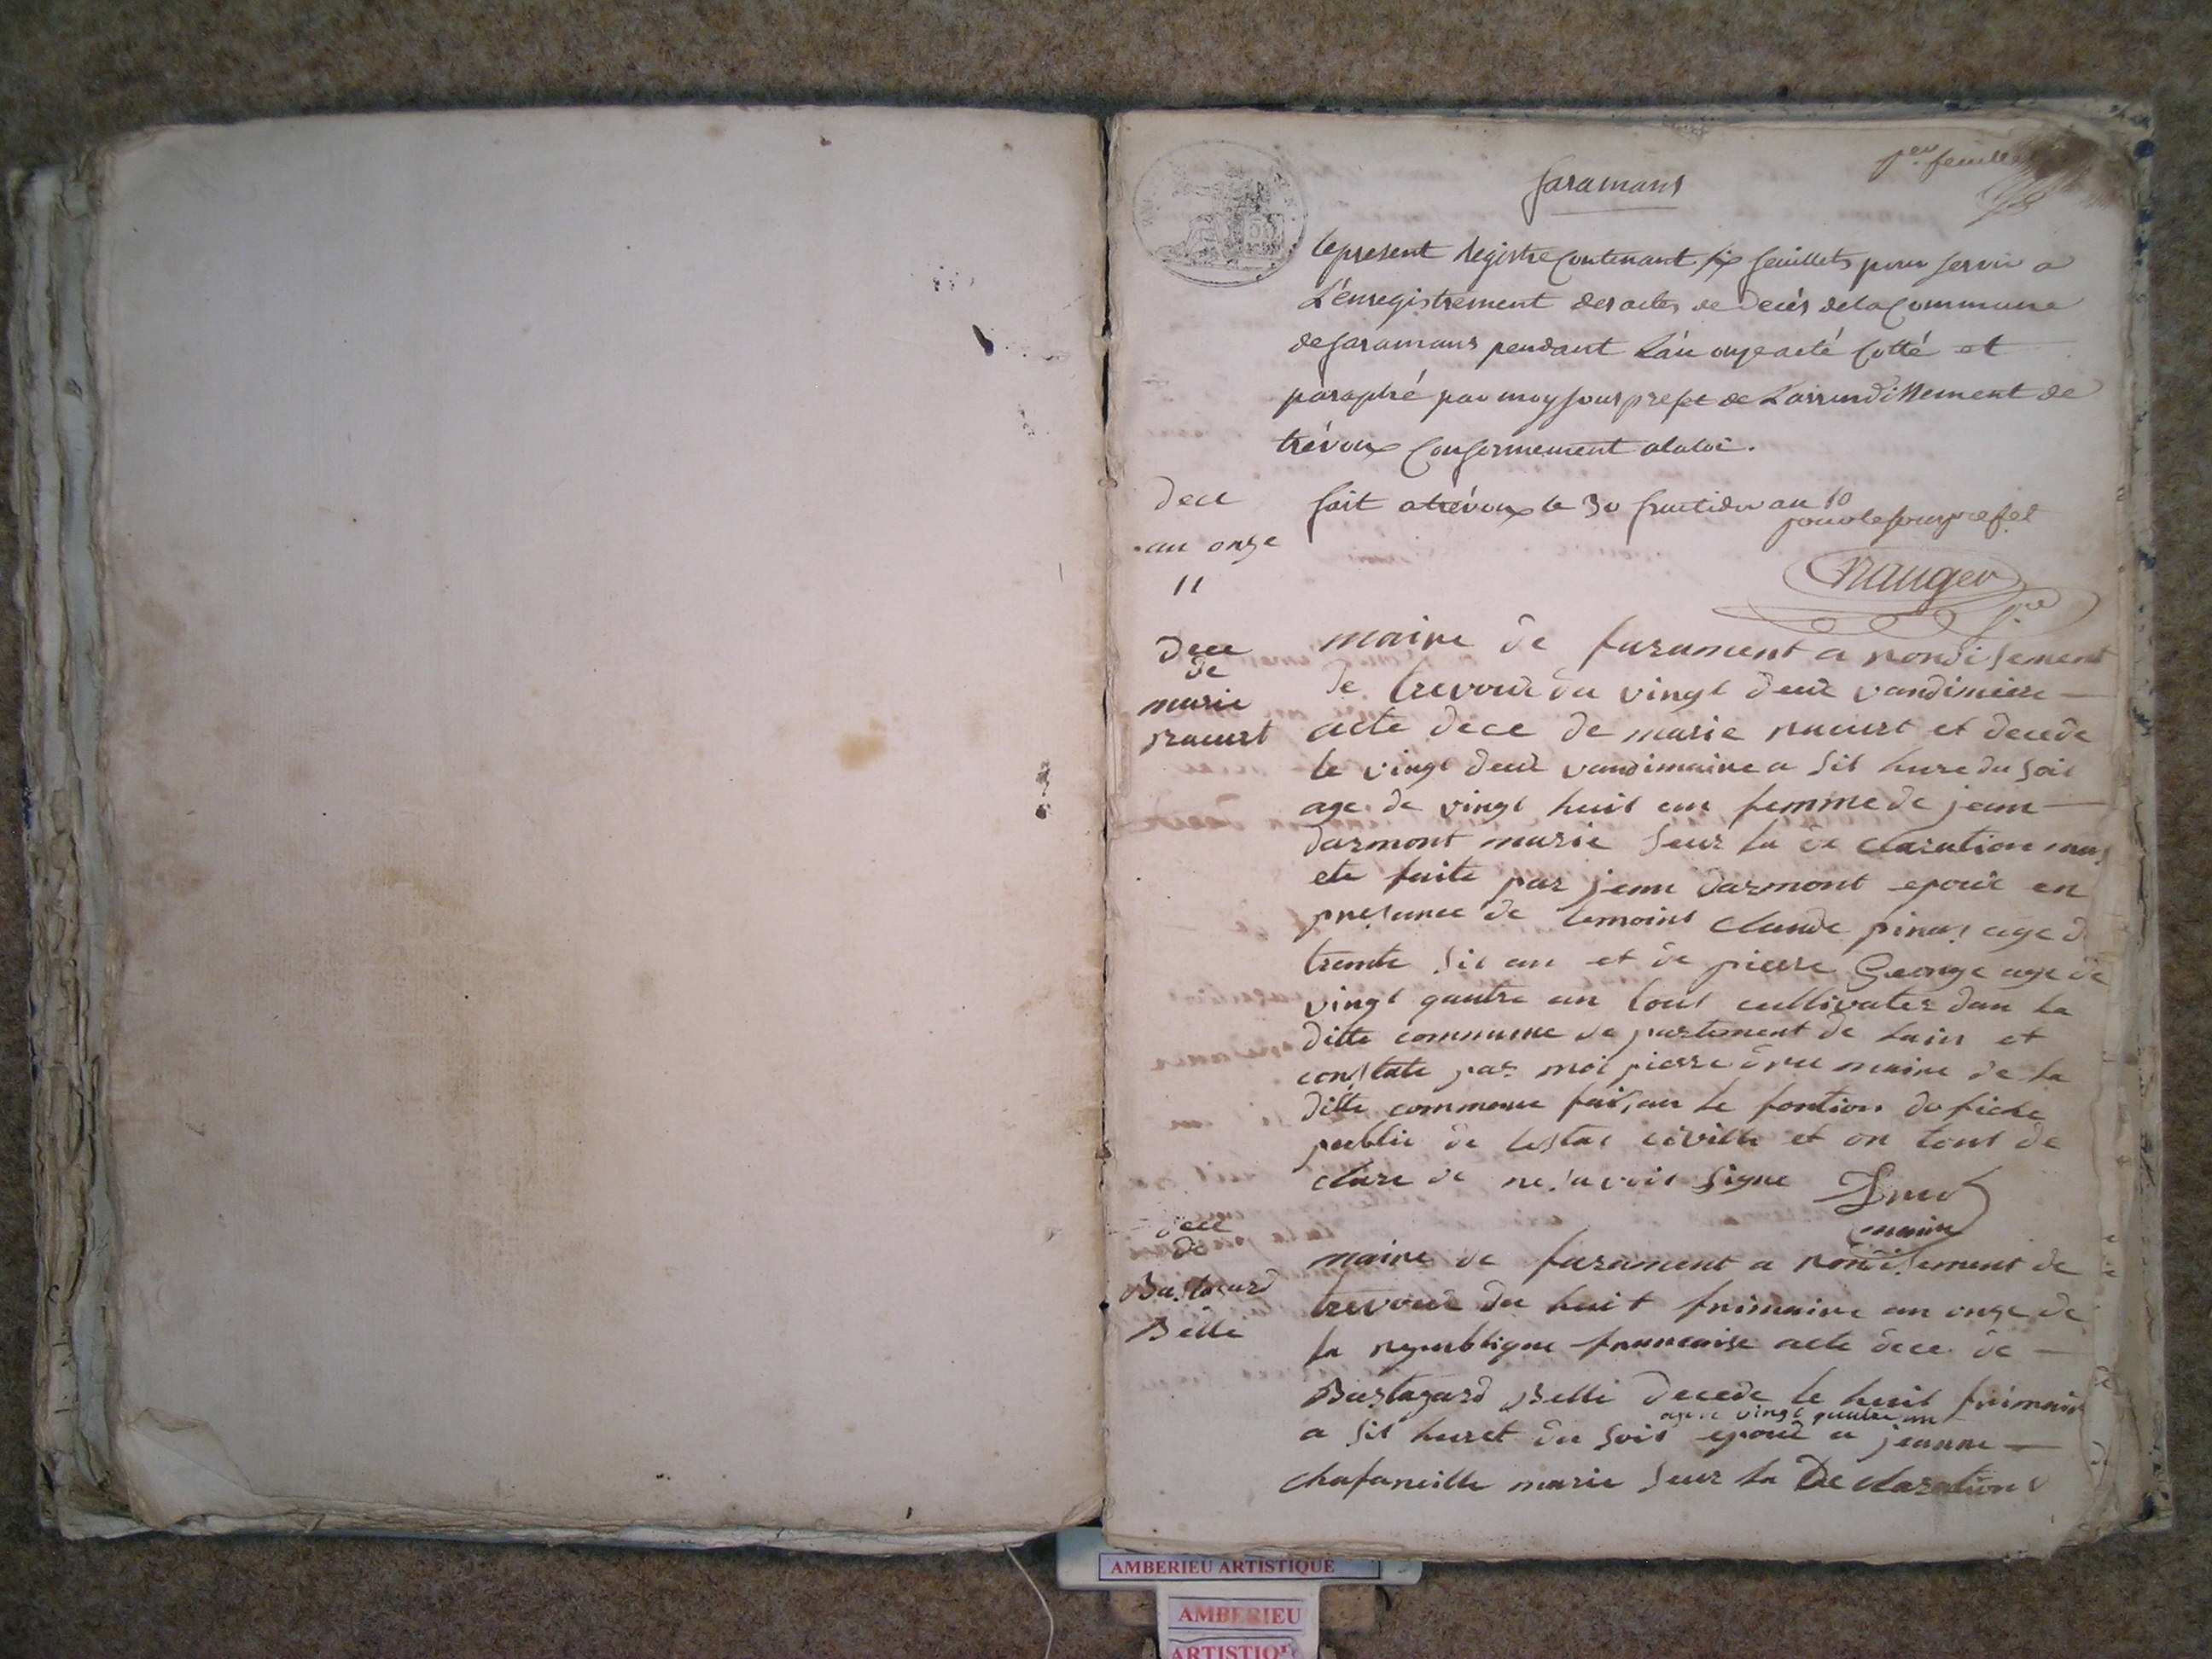 per feuillet
faramans
le present registre contenant six feuillets pour servir a
L'enregistrement des actes de decés de la Commune
de faramans pendant L'an onze acté cotté et
paraphé par moy sous prefet de L'arrondissement de
trévoux conformement a la loi.
fait a trévoux le 30 fructidor an 10
pour le sous prefet
dece
an onze
11
dece
de
marie
racurt
maire de farament a rondisement
de trevoux du vingt deux vandimiere
acte dece de marie racurt et decede
le vingt deux vandimaire a sis hure du soir
age de vingt huit an femme de jean
darmont marie seur la de claration
ete faite par jean darmont epoux en
presance de temoins claude age d
trente sis an et de pierre George age de
vingt quatre an tous cultivater dan la
ditte commune de partement de lain et
constate par moi pierre maire de la
ditte commune faisan le fontion do fiche
public de lestat civille et on tous de
clare de ne savoir signe
maire
dece
de
Bastazard
Belle
maire de farament a rondisement de
trevoux du huit frimaire an onze de
la republique francaise acte dece de
Bastazard Belle decede le huit frimair
age de vingt quatre an
a sis heuret du soir epoux a jeanne
marie seur la De claration
AMBERIEU ARTISTIQUE
AMBERIEU
ARTISTIQ